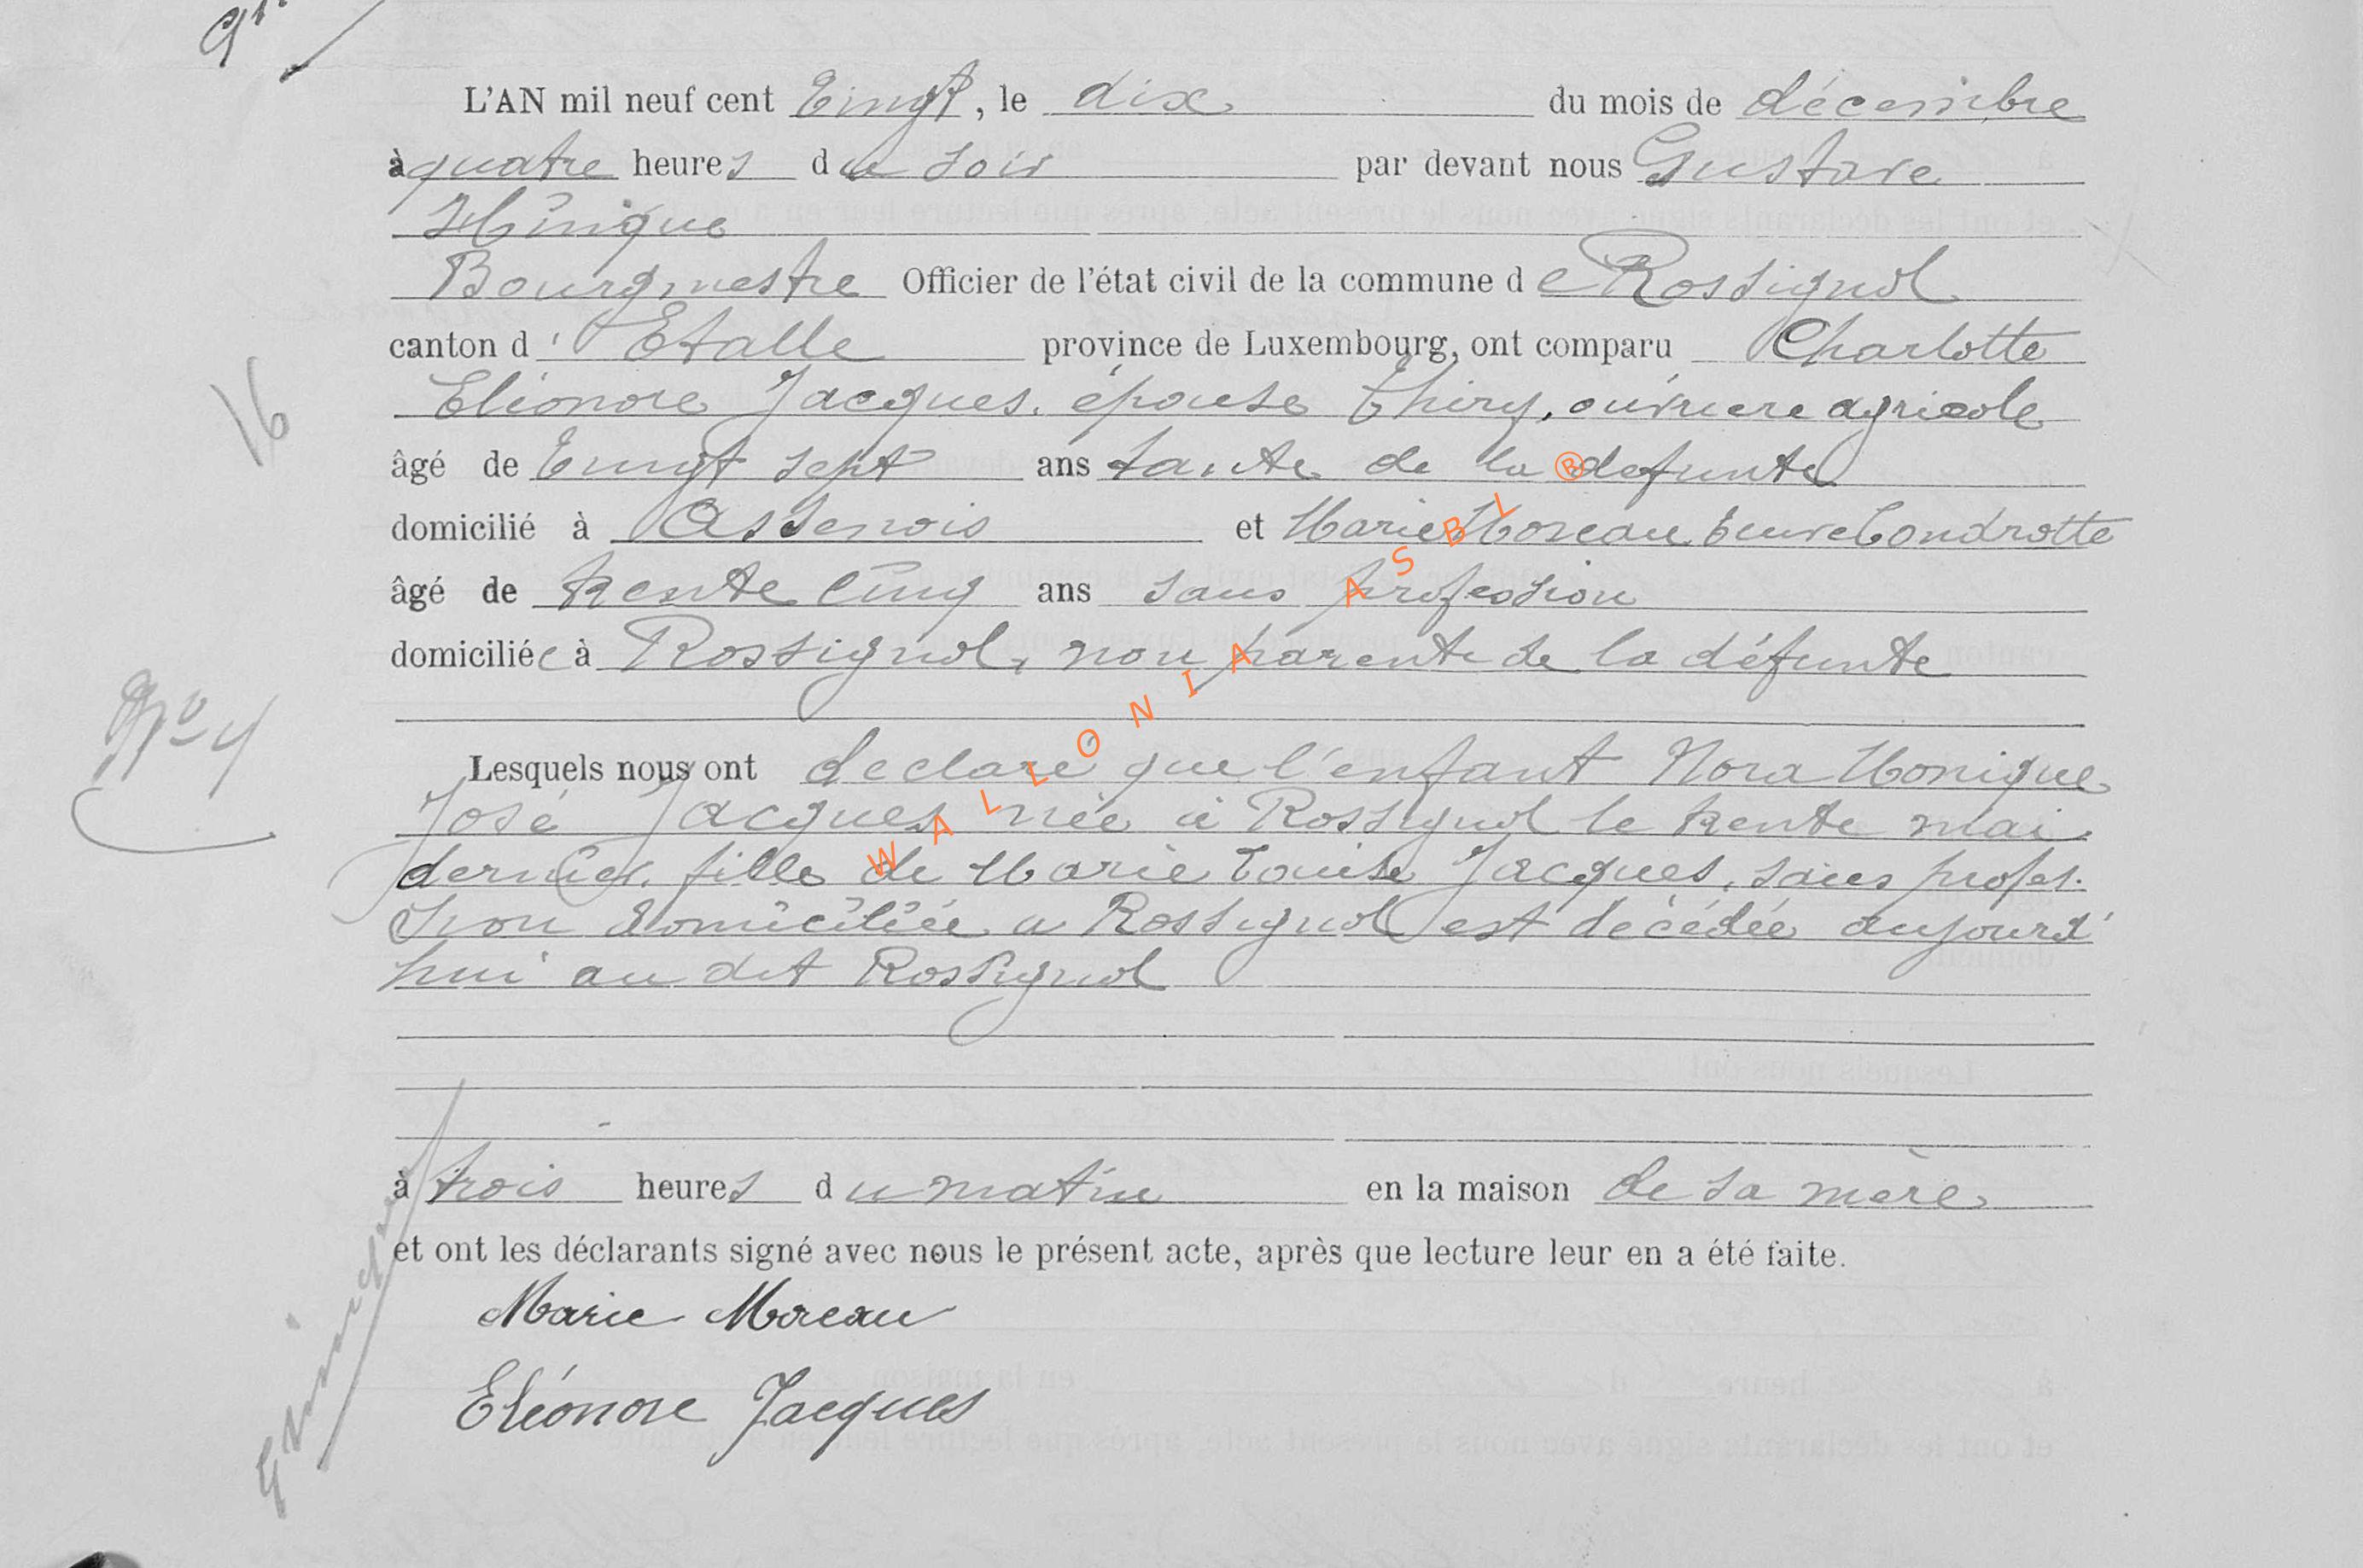 L'AN mil neuf cent Vingt, le dix du mois de décembre
à quatre heures du soir par devant nous Gustave
Hinique
Bourgmestre Officier de l'état civil de la commune de Rossignol
canton d'Etalle province de Luxembourg, ont comparu Charlotte
16
Eléonore Jacques, épouse Thiry, ouvriere agricole
âgé de Vingt sept ans tante de la defunte
domicilié à Assenois et Marie Moreau Veuve Condrotte
âgé de trente cinq ans sans profession
domiciliée à Rossignol, non parente de la défunte
No 4
Lesquels nous ont declaré que l'enfant Nora Monique
José Jacques née à Rossignol le trente mai
dernier, fille de Marie Louise Jacques, sans profes-
sion domiciliée a Rossignol est décédée aujourd'
hui au dit Rossignol
à trois heures du matin en la maison de sa mère
et ont les déclarants signé avec nous le présent acte, après que lecture leur en a été faite.
Marie Moreau
Eléonore Jacques
WALLONIA ASBL ®